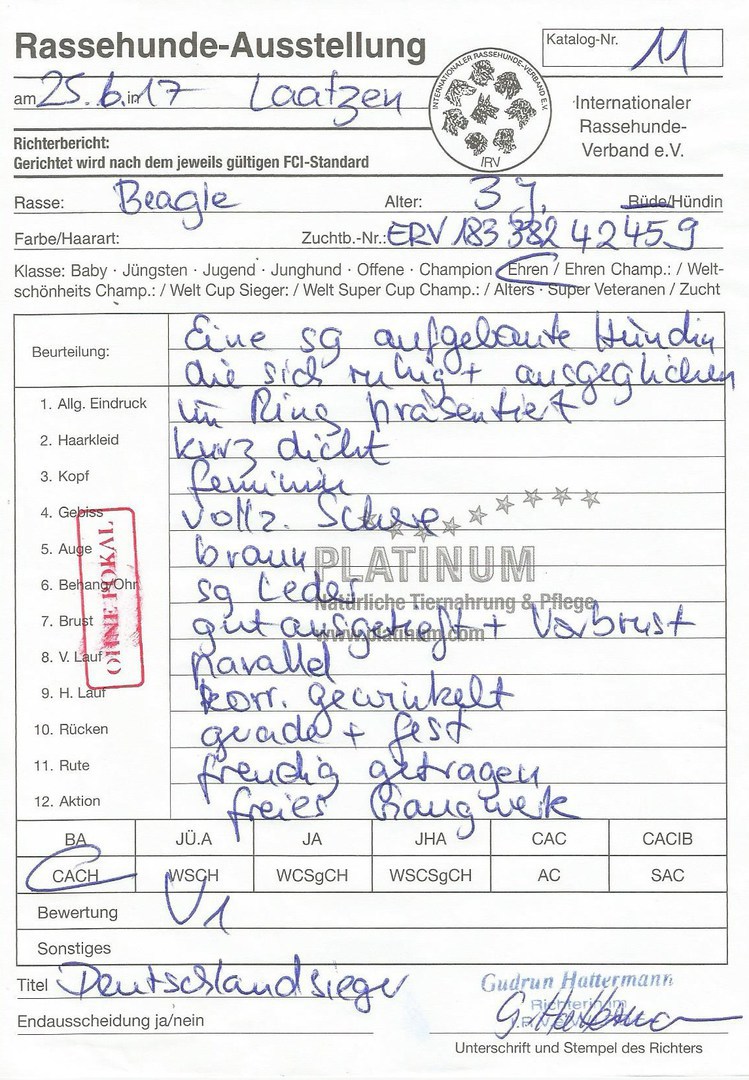 Rassehunde-Ausstellung
Katalog-Nr. 11
am 25.6. in 17 Laatzen
INTERNATIONALER RASSEHUNDE-VERBAND E.V.
IRV
Internationaler
Rassehunde-
Verband e.V.
Richterbericht:
Gerichtet wird nach dem jeweils gültigen FCI-Standard
Rasse: Beagle Alter: 3 J. Rüde/Hündin
Farbe/Haarart: Zuchtb.-Nr.: ERV 183 382 42459
Klasse: Baby · Jüngsten · Jugend · Junghund · Offene · Champion · Ehren / Ehren Champ.: / Welt-
schönheits Champ.: / Welt Cup Sieger: / Welt Super Cup Champ.: / Alters · Super Veteranen / Zucht
Beurteilung: Eine sg aufgebaute Hündin
die sich ruhig + ausgeglichen
1. Allg. Eindruck im Ring präsentiert
2. Haarkleid kurz dicht
3. Kopf feminin
4. Gebiss vollz. Schere
5. Auge braun
PLATINUM
6. Behang/Ohr sg Leder
Natürliche Tiernahrung & Pflege
7. Brust gut ausgetieft + Vorbrust
www.platinum.com
8. V. Lauf parallel
9. H. Lauf korr. gewinkelt
OHNE POKAL
10. Rücken gerade + fest
11. Rute freudig getragen
12. Aktion freies Gangwerk
BA JÜ.A JA JHA CAC CACIB
CACH WSCH WCSgCH WSCSgCH AC SAC
Bewertung V1
Sonstiges
Titel Deutschlandsieger
Gudrun Hattermann
Richterin im
G. Hattermann
Endausscheidung ja/nein
Unterschrift und Stempel des Richters